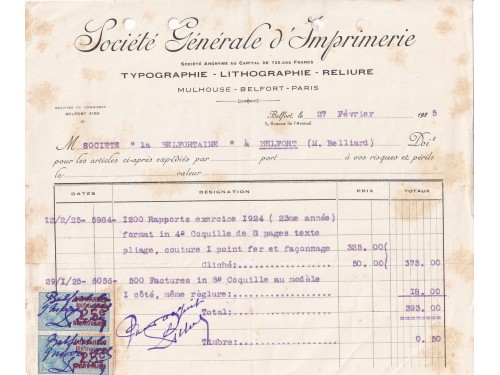 Société Générale d'Imprimerie
SOCIÉTÉ ANONYME AU CAPITAL DE 725.000 FRANCS
TYPOGRAPHIE - LITHOGRAPHIE - RELIURE
MULHOUSE - BELFORT - PARIS
REGISTRE DU COMMERCE
BELFORT
Belfort, le 27 Février 1925
5, Avenue de l'Arsenal
M SOCIETE " la BELFORTAINE " à BELFORT (M. Belliard) Doit
pour les articles ci-après expédiés par port à vos risques et périls
le valeur
DATES DÉSIGNATION PRIX TOTAUX
12/2/25- 5984- 1200 Rapports exercice 1924 ( 23me année)
format in 4º Coquille de 8 pages texte
pliage, couture 1 point fer et façonnage 325.00
Cliché: 50.00 375.00
29/1/25- 6056- 500 Factures in 8º Coquille au modèle
1 côté, même règlure: 18.00
Total: 393.00
Timbre: 0.50